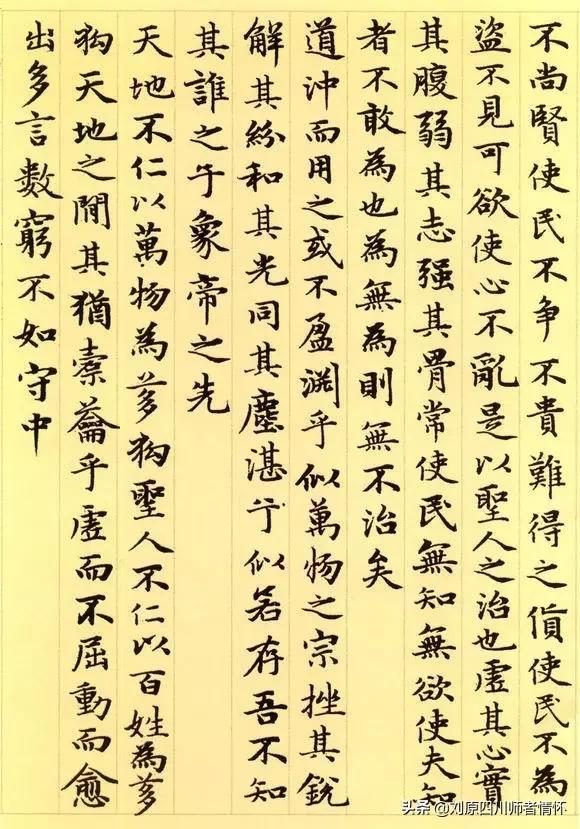 不尚賢使民不争不貴難得之貨使民不為
盜不見可欲使心不亂是以聖人之治也虛其心實
其腹弱其志强其骨常使民無知無欲使夫知
者不敢為也為無為則無不治矣
道沖而用之或不盈淵乎似萬物之宗挫其銳
解其紛和其光同其塵湛乎似若存吾不知
其誰之子象帝之先
天地不仁以萬物為芻狗聖人不仁以百姓為芻
狗天地之間其猶橐籥乎虛而不屈動而愈
出多言數窮不如守中
头条 @刘原四川师者情怀